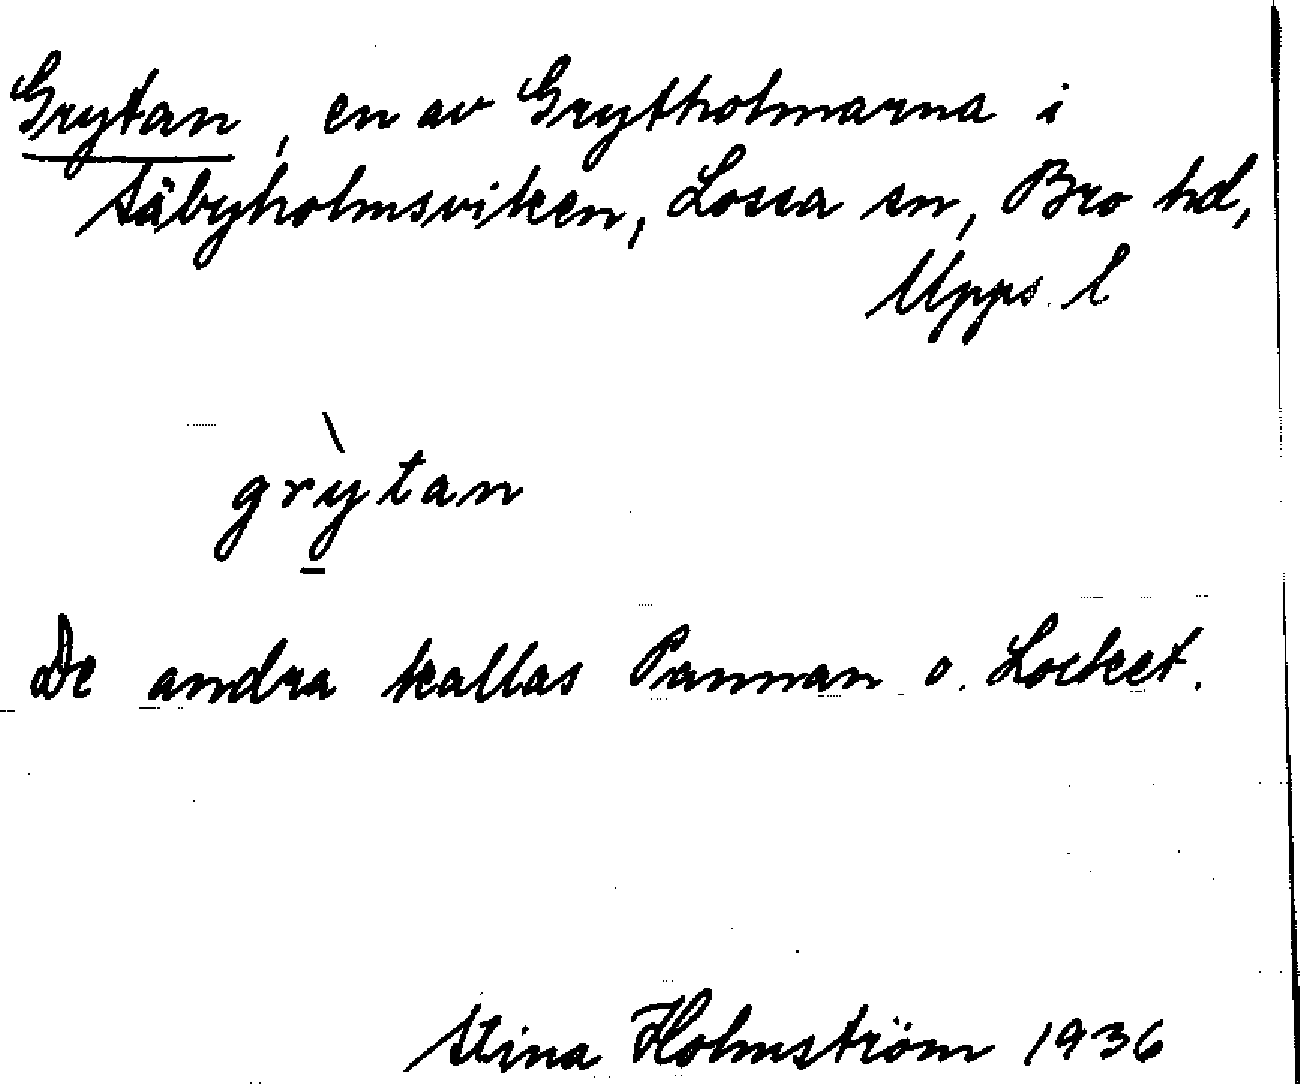 Grytan, en av Grytholmarna i
Säbyholmsviken, Lossa sn, Bro hd,
Upps. l
grỳtan
De andra kallas Pannan o. Locket.
Stina Holmström 1936